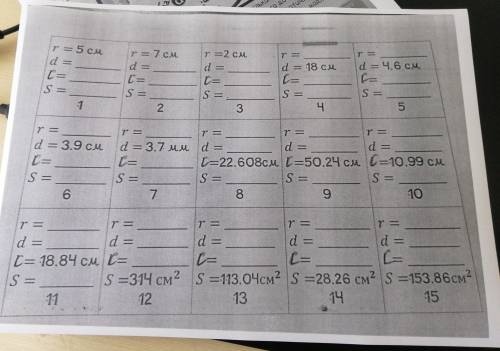 r = 5 см
d = ____
C= ____
S = ____
1
r = 7 см
d = ____
C= ____
S = ____
2
r =2 см
d = ____
C= ____
S = ____
3
r = ____
d = 18 см
C= ____
S = ____
4
r = ____
d = 4.6 см
C= ____
S = ____
5
r = ____
d = 3.9 см
C= ____
S = ____
6
r = ____
d = 3.7 мм
C= ____
S = ____
7
r = ____
d = ____
C=22.608см
S = ____
8
r = ____
d = ____
C=50.24 см
S = ____
9
r = ____
d = ____
C=10.99 см
S = ____
10
r = ____
d = ____
C= 18.84 см
S = ____
11
r = ____
d = ____
C= ____
S =314 см²
12
r = ____
d = ____
C= ____
S =113.04см²
13
r = ____
d = ____
C= ____
S =28.26 см²
14
r = ____
d = ____
C= ____
S =153.86см²
15